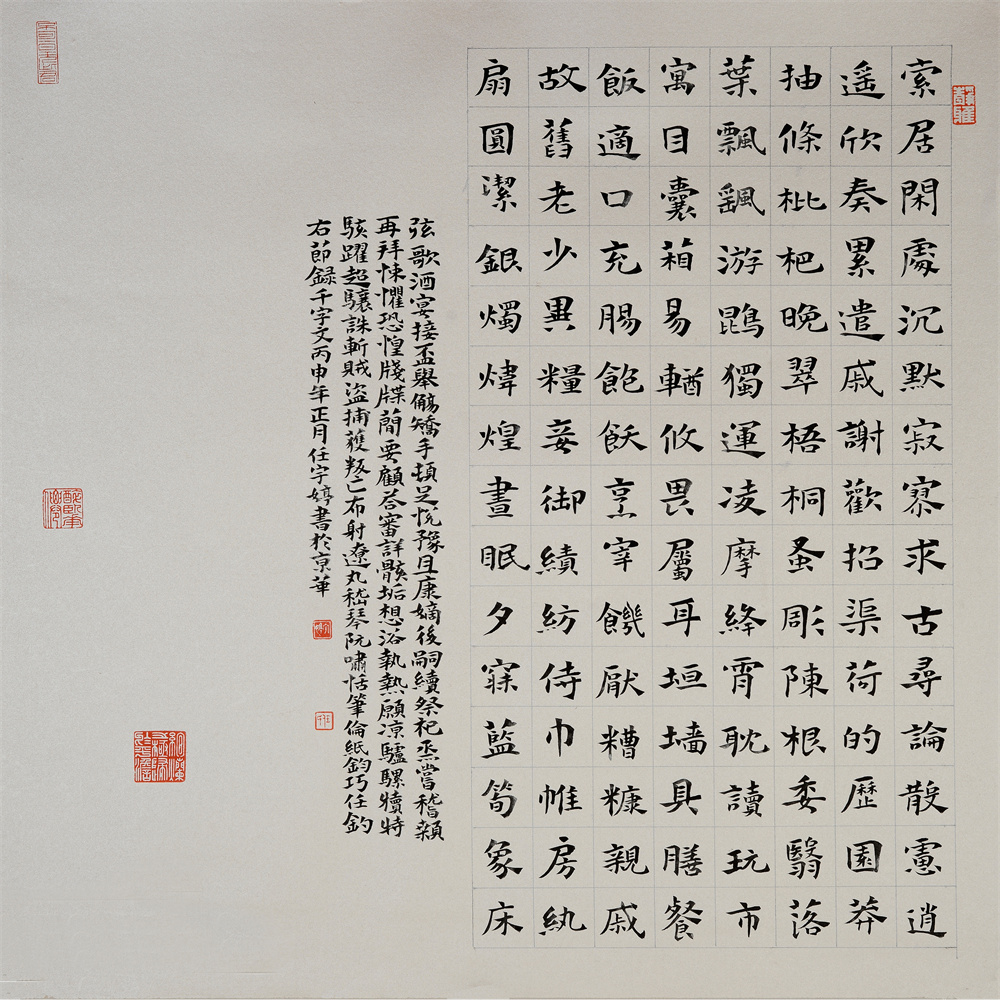 索居閑處沉默寂寥求古尋論散慮逍
遥欣奏累遣慼謝歡招渠荷的歷園莽
抽條枇杷晚翠梧桐蚤彫陳根委翳落
葉飄颻游鵾獨運凌摩絳霄耽讀玩市
寓目囊箱易輶攸畏屬耳垣墻具膳餐
飯適口充腸飽飫烹宰饑厭糟糠親戚
故舊老少異糧妾御績紡侍巾帷房紈
扇圓潔銀燭煒煌晝眠夕寐藍筍象床
弦歌酒宴接盃舉觴矯手頓足悦豫且康嫡後嗣續祭祀烝嘗稽顙
再拜悚懼恐惶牋牒簡要顧荅審詳骸垢想浴執熱願凉驢騾犢特
駭躍超驤誅斬賊盜捕獲叛亡布射遼丸嵇琴阮嘯恬筆倫紙鈞巧任釣
右節録千字文丙申年正月任宇婷書於京華